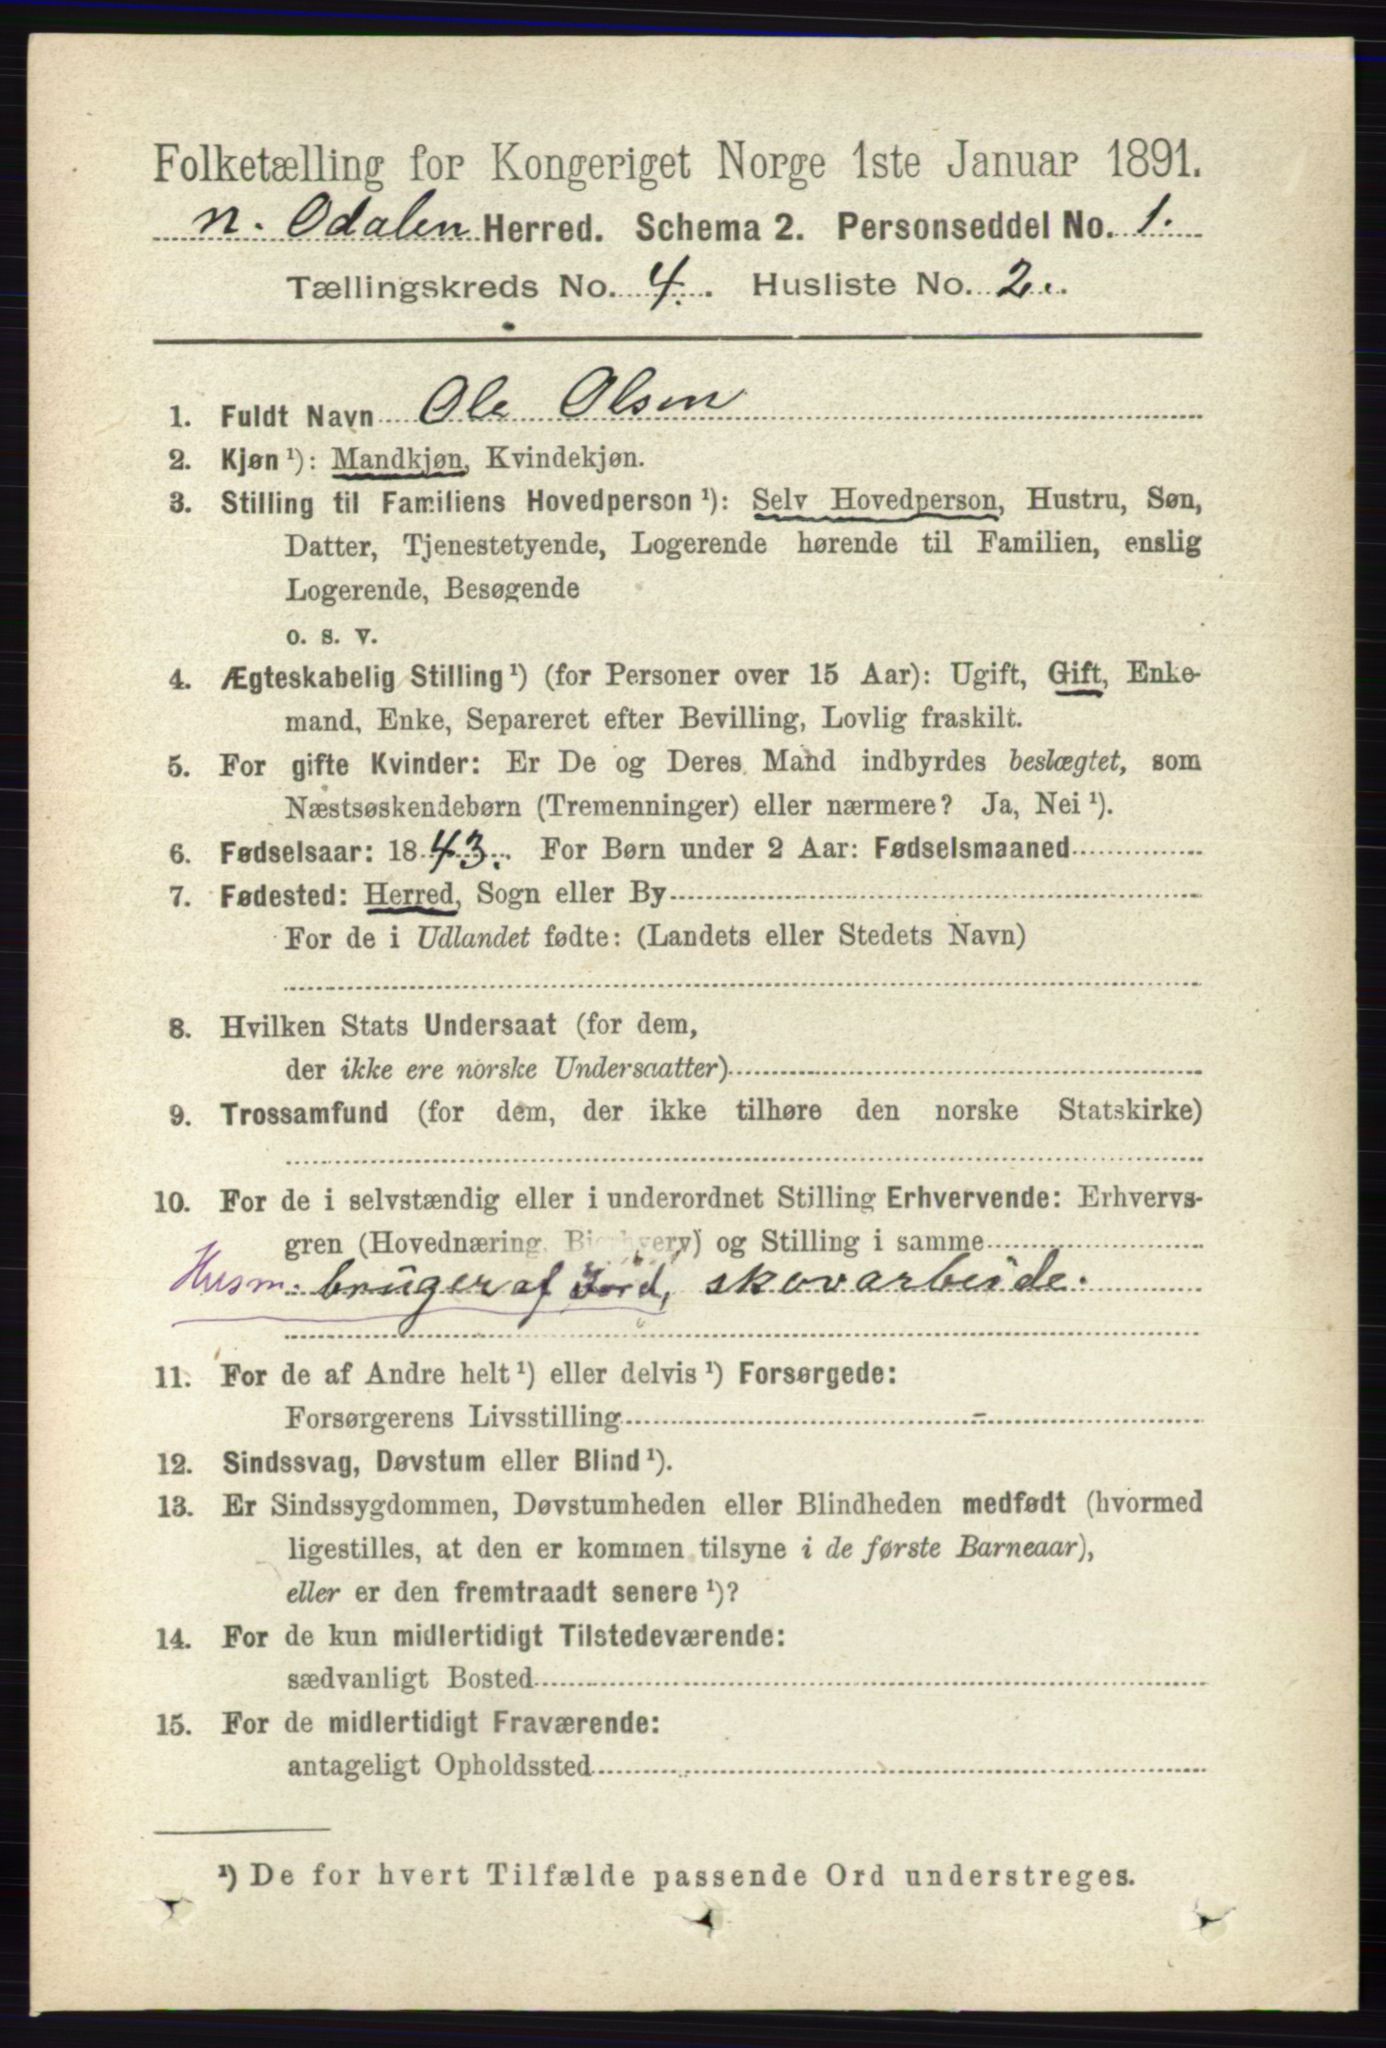 Folketælling for Kongeriget Norge 1ste Januar 1891.
N. Odalen Herred. Schema 2. Personseddel No. 1.
Tællingskreds No. 4. Husliste No. 2.
1. Fuldt Navn Ole Olsen
2. Kjøn ¹): Mandkjøn, Kvindekjøn.
3. Stilling til Familiens Hovedperson ¹): Selv Hovedperson, Hustru, Søn,
Datter, Tjenestetyende, Logerende hørende til Familien, enslig
Logerende, Besøgende
o. s. v.
4. Ægteskabelig Stilling ¹) (for Personer over 15 Aar): Ugift, Gift, Enke-
mand, Enke, Separeret efter Bevilling, Lovlig fraskilt.
5. For gifte Kvinder: Er De og Deres Mand indbyrdes beslægtet, som
Næstsøskendebørn (Tremenninger) eller nærmere? Ja, Nei ¹).
6. Fødselsaar: 1843. For Børn under 2 Aar: Fødselsmaaned
7. Fødested: Herred, Sogn eller By
For de i Udlandet fødte: (Landets eller Stedets Navn)
8. Hvilken Stats Undersaat (for dem,
der ikke ere norske Undersaatter)
9. Trossamfund (for dem, der ikke tilhøre den norske Statskirke)
10. For de i selvstændig eller i underordnet Stilling Erhvervende: Erhvervs-
gren (Hovednæring, Bierhverv) og Stilling i samme
Husm. bruger af Jord, skovarbeide.
11. For de af Andre helt ¹) eller delvis ¹) Forsørgede:
Forsørgerens Livsstilling
12. Sindssvag, Døvstum eller Blind ¹).
13. Er Sindssygdommen, Døvstumheden eller Blindheden medfødt (hvormed
ligestilles, at den er kommen tilsyne i de første Barneaar),
eller er den fremtraadt senere ¹)?
14. For de kun midlertidigt Tilstedeværende:
sædvanligt Bosted
15. For de midlertidigt Fraværende:
antageligt Opholdssted
¹) De for hvert Tilfælde passende Ord understreges.